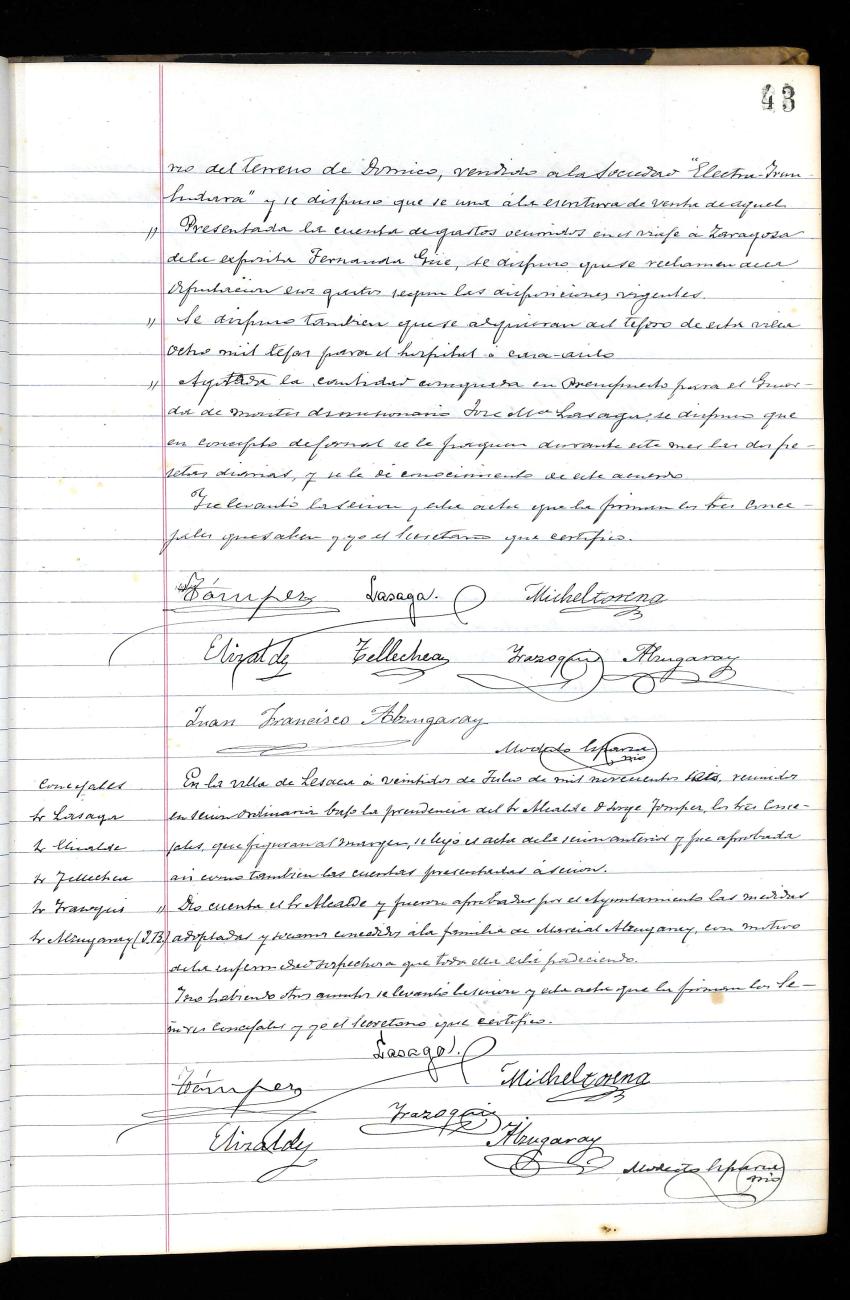 43
rio del terreno de Domico, vendido a la Sociedad "Electra-Iran-
hudara" y se dispuso que se una á la escritura de venta de aquel
" Presentada la cuenta de gastos ocurridos en el viaje á Zaragoza
de la expósita Fernanda se dispuso que se reclamen de la
Diputación esos gastos segun las disposiciones vigentes.
" Se dispuso tambien que se adquieran del tejero de esta villa
ocho mil tejas para el hospital ó casa-asilo
" Agotada la cantidad consignada en Presupuesto para el Guar-
da de montes dimisionario José Mª Lasaga, se dispuso que
en concepto de jornal se le paguen durante este mes las dos pe-
setas diarias, y se le dé conocimiento de este acuerdo.
Y se levantó la sesion y esta acta que la firman los tres conce-
jales que saben y yo el Secretario que certifico.
Tómper Lasaga. Micheltorena
Elizalde Tellechea Irazoqui Alzugaray
Juan Francisco Alzugaray
Modesto Esparza
srio
Concejales
Sr Lasaga
Sr Elizalde
Sr Tellechea
Sr Irazoqui
Sr Alzugaray (J.B.)
En la villa de Lesaca á veintidos de Julio de mil novecientos seis, reunidos
en sesion ordinaria bajo la presidencia del Sr Alcalde D Jorge Tomper, los tres Conce-
jales, que figuran al margen, se leyó el acta de la sesion anterior y fue aprobada
asi como tambien las cuentas presentadas á sesion.
" Dió cuenta el Sr Alcalde y fueron aprobadas por el Ayuntamiento las medidas
adoptadas y socorros concedidos á la familia de Marcial Alzugaray, con motivo
de la enfermedad sospechosa que toda ella está padeciendo.
Y no habiendo otros asuntos se levantó la sesion y esta acta que la firman los Se-
ñores Concejales y yo el Secretario que certifico.
Lasaga.
Tómper Micheltorena
Irazoqui
Elizalde Alzugaray
Modesto Esparza
srio